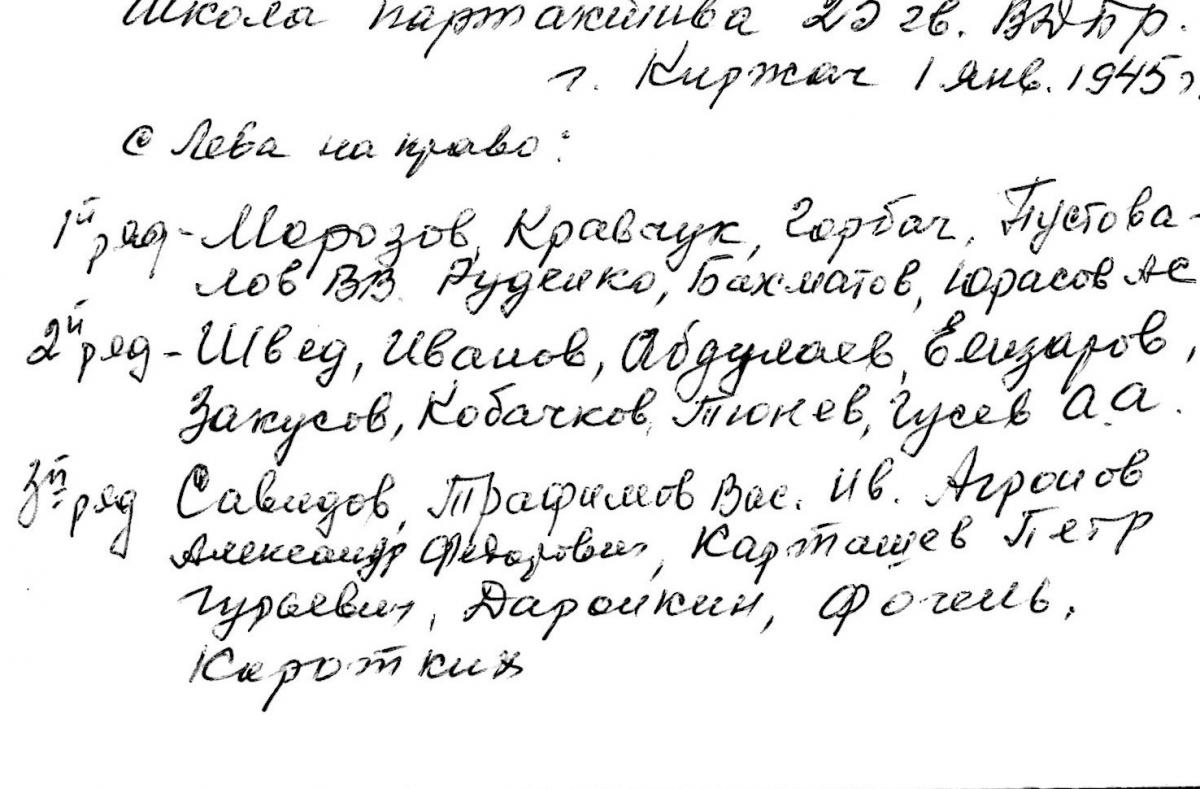 Школа партактива 25 гв. ВДбр.
г. Киржач 1 янв. 1945 г.
с Лева на право:
1й ряд - Морозов, Кравчук, Горбач, Пустова-
лов ВВ. Руденко, Бахматов, Юрасов АС
2й ряд - Швед, Иванов, Абдулаев, Елизаров,
Закусов, Кобачков, Тюнев, Гусев А.А.
3й ряд Савидов, Трафимов Вас. Ив. Агронов
Александр Федорович, Карташев Петр
Гурьевич, Даронкин,
Коротких